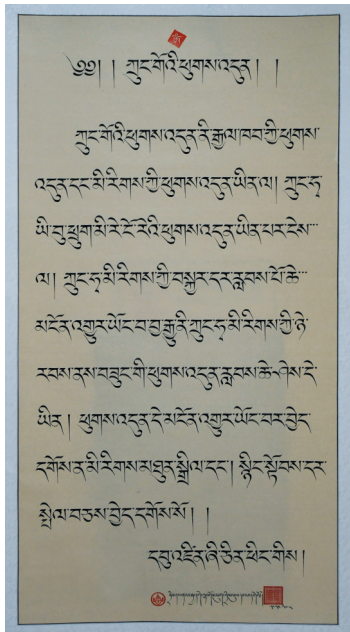 ༄༅། །ཀྲུང་གོའི་ཕུགས་འདུན། །
ཀྲུང་གོའི་ཕུགས་འདུན་ནི་རྒྱལ་ཁབ་ཀྱི་ཕུགས་
འདུན་དང་མི་རིགས་ཀྱི་ཕུགས་འདུན་ཡིན་ལ། ཀྲུང་ཧྭ་
ཡི་བུ་ཕྲུག་མི་རེ་ངོ་རེའི་ཕུགས་འདུན་ཡིན་པར་ངེས
ལ། ཀྲུང་ཧྭ་མི་རིགས་ཀྱི་བསྐྱར་དར་རླབས་པོ་ཆེ
མངོན་འགྱུར་ཡོང་བ་བྱ་རྒྱུ་ནི་ཀྲུང་ཧྭ་མི་རིགས་ཀྱི་ཉེ་
རབས་ནས་བཟུང་གི་ཕུགས་འདུན་རླབས་ཆེ་ཤོས་དེ་
ཡིན། ཕུགས་འདུན་དེ་མངོན་འགྱུར་ཡོང་བར་བྱེད་
དགོས་ན་མི་རིགས་མཐུན་སྒྲིལ་དང་། སྙིང་སྟོབས་དར་
སྤེལ་བཅས་བྱེད་དགོས་སོ། །
དབུ་འཛིན་ཞི་ཅིན་ཕིང་གིས།